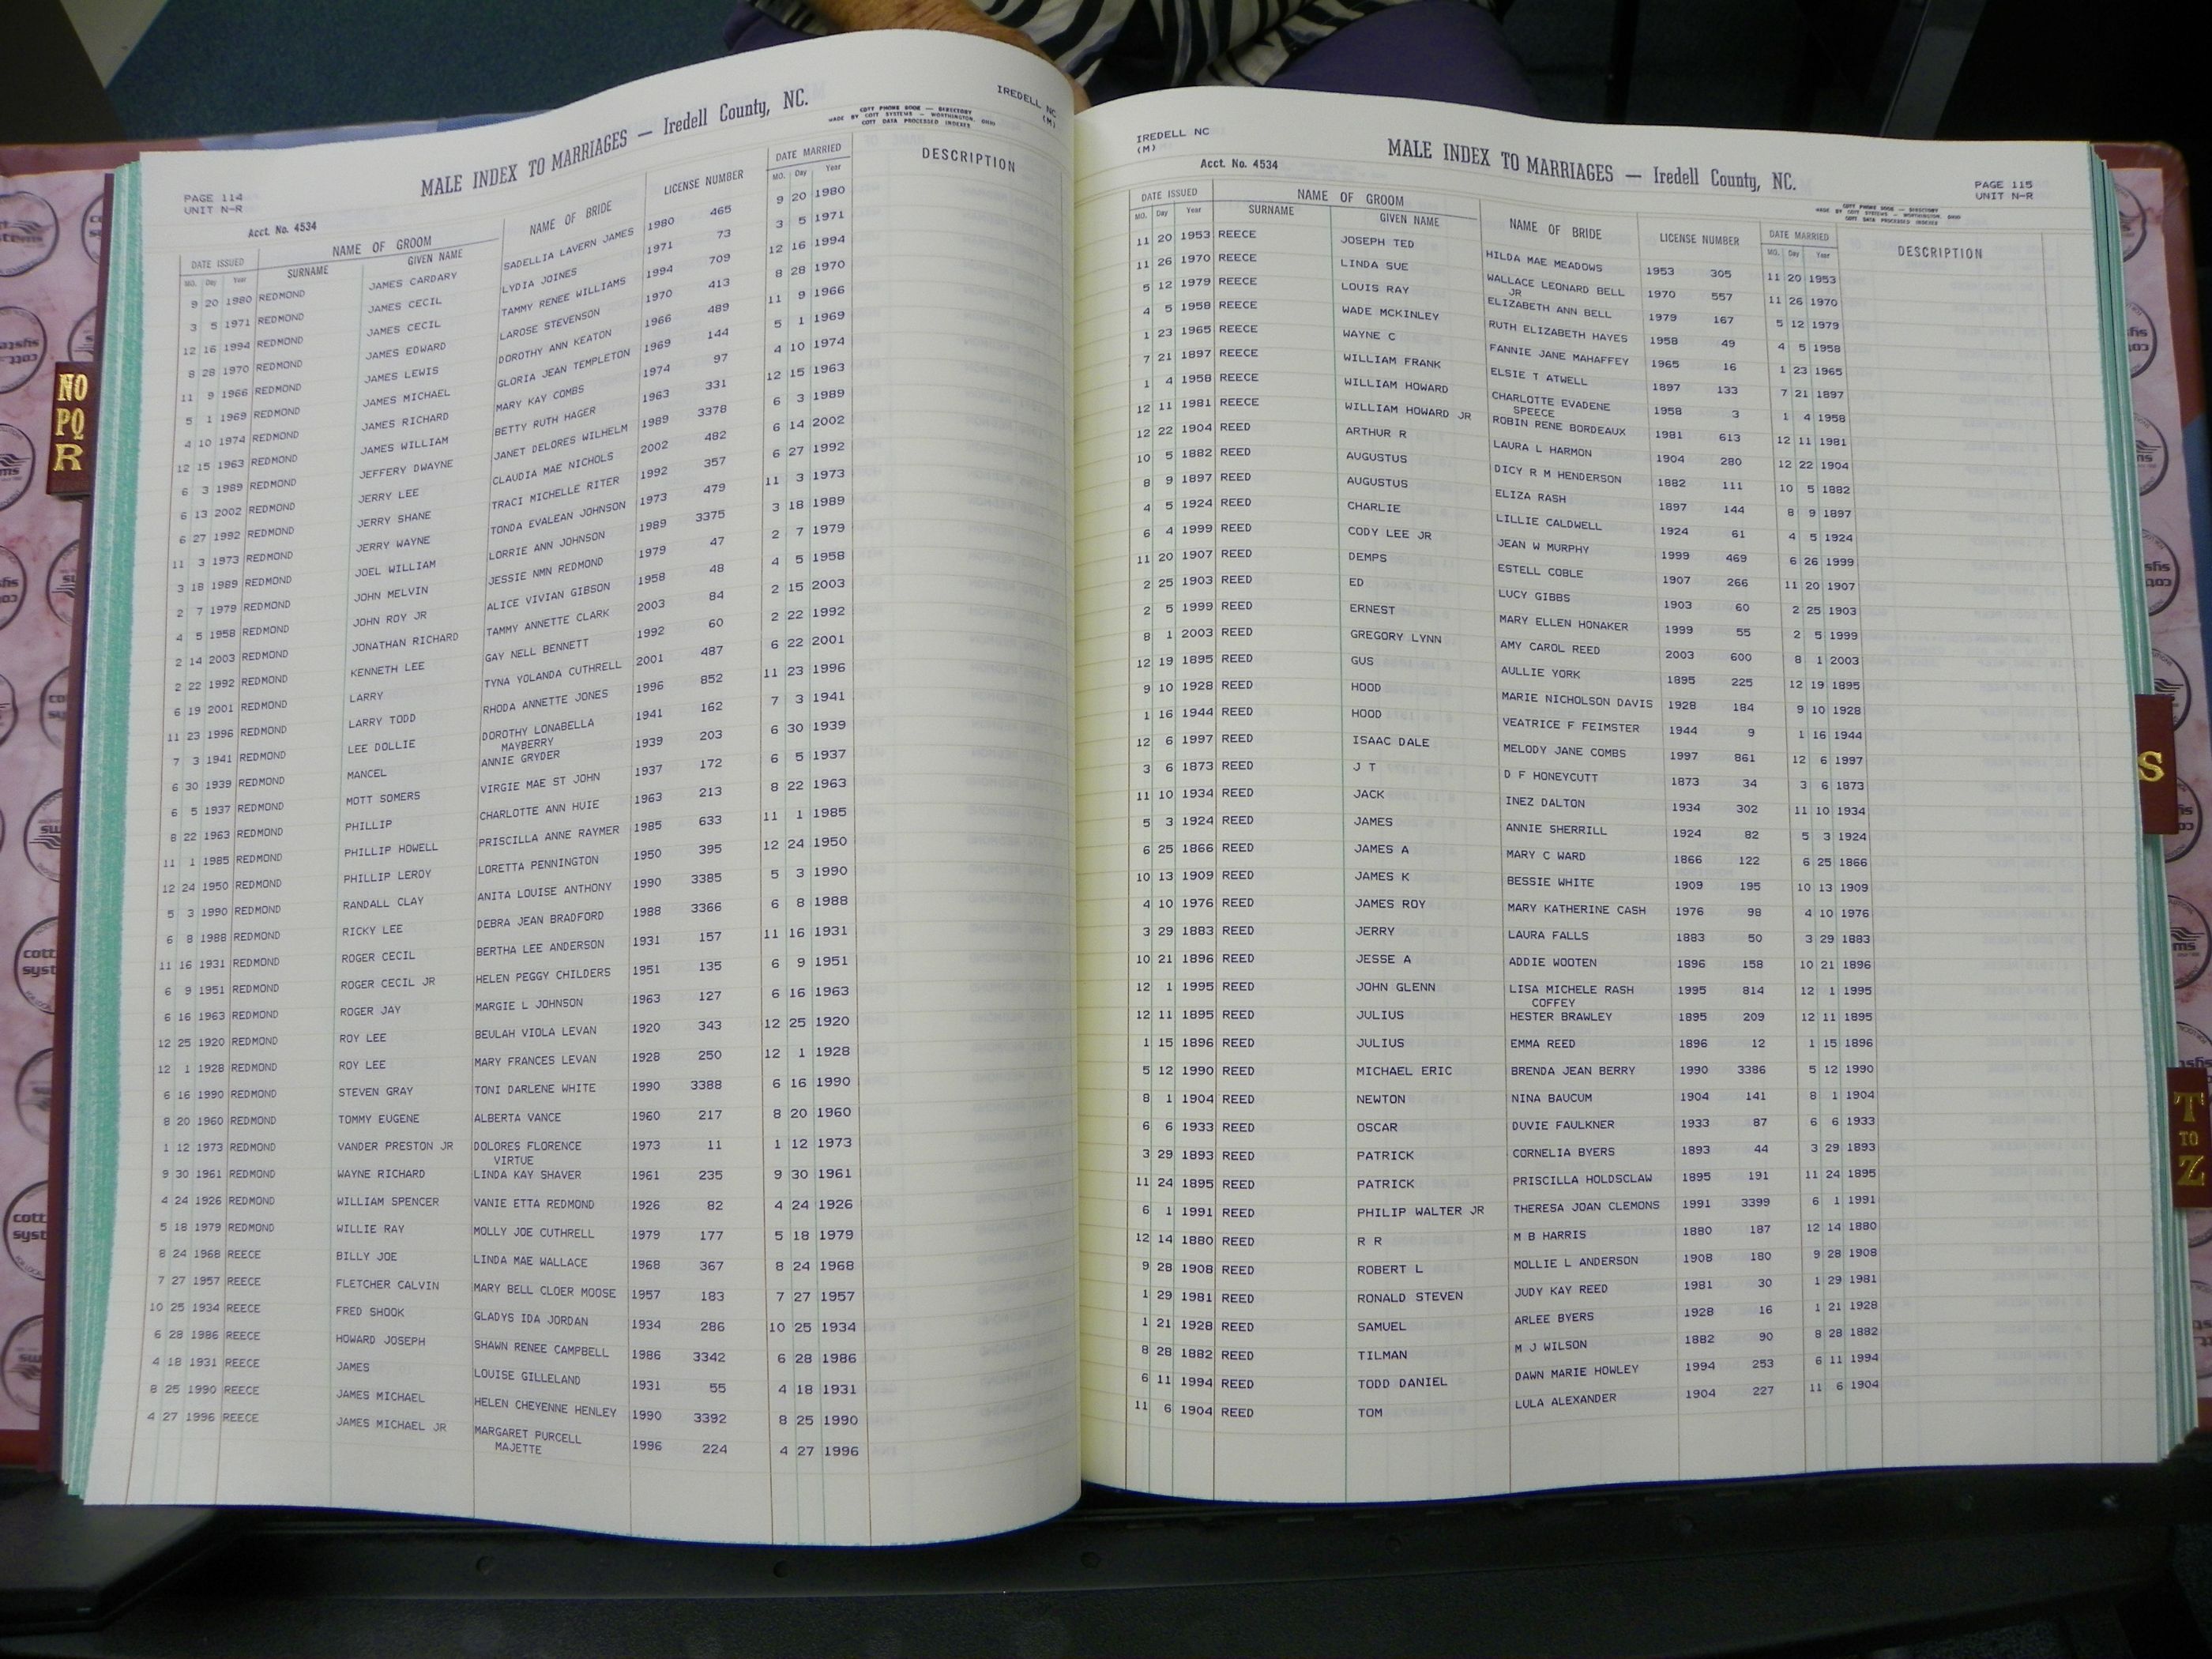 IREDELL NC
(M)
COTT PHONE BOOK — DIRECTORY
MADE BY COTT SYSTEMS — WORTHINGTON, OHIO
COTT DATA PROCESSED INDEXES
MALE INDEX TO MARRIAGES — Iredell County, NC.
PAGE 114
UNIT N-R
Acct. No. 4534
DATE ISSUED NAME OF GROOM NAME OF BRIDE LICENSE NUMBER DATE MARRIED DESCRIPTION
MO. Day Year SURNAME GIVEN NAME MO. Day Year
9 20 1980 REDMOND JAMES CARDARY SADELLIA LAVERN JAMES 1980 465 9 20 1980
3 5 1971 REDMOND JAMES CECIL LYDIA JOINES 1971 73 3 5 1971
12 16 1994 REDMOND JAMES CECIL TAMMY RENEE WILLIAMS 1994 709 12 16 1994
8 28 1970 REDMOND JAMES EDWARD LAROSE STEVENSON 1970 413 8 28 1970
11 9 1966 REDMOND JAMES LEWIS DOROTHY ANN KEATON 1966 489 11 9 1966
5 1 1969 REDMOND JAMES MICHAEL GLORIA JEAN TEMPLETON 1969 144 5 1 1969
4 10 1974 REDMOND JAMES RICHARD MARY KAY COMBS 1974 97 4 10 1974
12 15 1963 REDMOND JAMES WILLIAM BETTY RUTH HAGER 1963 331 12 15 1963
6 3 1989 REDMOND JEFFERY DWAYNE JANET DELORES WILHELM 1989 3378 6 3 1989
6 13 2002 REDMOND JERRY LEE CLAUDIA MAE NICHOLS 2002 482 6 14 2002
6 27 1992 REDMOND JERRY SHANE TRACI MICHELLE RITER 1992 357 6 27 1992
11 3 1973 REDMOND JERRY WAYNE TONDA EVALEAN JOHNSON 1973 479 11 3 1973
3 18 1989 REDMOND JOEL WILLIAM LORRIE ANN JOHNSON 1989 3375 3 18 1989
2 7 1979 REDMOND JOHN MELVIN JESSIE NMN REDMOND 1979 47 2 7 1979
4 5 1958 REDMOND JOHN ROY JR ALICE VIVIAN GIBSON 1958 48 4 5 1958
2 14 2003 REDMOND JONATHAN RICHARD TAMMY ANNETTE CLARK 2003 84 2 15 2003
2 22 1992 REDMOND KENNETH LEE GAY NELL BENNETT 1992 60 2 22 1992
6 19 2001 REDMOND LARRY TYNA YOLANDA CUTHRELL 2001 487 6 22 2001
11 23 1996 REDMOND LARRY TODD RHODA ANNETTE JONES 1996 852 11 23 1996
7 3 1941 REDMOND LEE DOLLIE DOROTHY LONABELLA 1941 162 7 3 1941
MAYBERRY
6 30 1939 REDMOND MANCEL ANNIE GRYDER 1939 203 6 30 1939
6 5 1937 REDMOND MOTT SOMERS VIRGIE MAE ST JOHN 1937 172 6 5 1937
8 22 1963 REDMOND PHILLIP CHARLOTTE ANN HUIE 1963 213 8 22 1963
11 1 1985 REDMOND PHILLIP HOWELL PRISCILLA ANNE RAYMER 1985 633 11 1 1985
12 24 1950 REDMOND PHILLIP LEROY LORETTA PENNINGTON 1950 395 12 24 1950
5 3 1990 REDMOND RANDALL CLAY ANITA LOUISE ANTHONY 1990 3385 5 3 1990
6 8 1988 REDMOND RICKY LEE DEBRA JEAN BRADFORD 1988 3366 6 8 1988
11 16 1931 REDMOND ROGER CECIL BERTHA LEE ANDERSON 1931 157 11 16 1931
6 9 1951 REDMOND ROGER CECIL JR HELEN PEGGY CHILDERS 1951 135 6 9 1951
6 16 1963 REDMOND ROGER JAY MARGIE L JOHNSON 1963 127 6 16 1963
12 25 1920 REDMOND ROY LEE BEULAH VIOLA LEVAN 1920 343 12 25 1920
12 1 1928 REDMOND ROY LEE MARY FRANCES LEVAN 1928 250 12 1 1928
6 16 1990 REDMOND STEVEN GRAY TONI DARLENE WHITE 1990 3388 6 16 1990
8 20 1960 REDMOND TOMMY EUGENE ALBERTA VANCE 1960 217 8 20 1960
1 12 1973 REDMOND VANDER PRESTON JR DOLORES FLORENCE 1973 11 1 12 1973
VIRTUE
9 30 1961 REDMOND WAYNE RICHARD LINDA KAY SHAVER 1961 235 9 30 1961
4 24 1926 REDMOND WILLIAM SPENCER VANIE ETTA REDMOND 1926 82 4 24 1926
5 18 1979 REDMOND WILLIE RAY MOLLY JOE CUTHRELL 1979 177 5 18 1979
8 24 1968 REECE BILLY JOE LINDA MAE WALLACE 1968 367 8 24 1968
7 27 1957 REECE FLETCHER CALVIN MARY BELL CLOER MOOSE 1957 183 7 27 1957
10 25 1934 REECE FRED SHOOK GLADYS IDA JORDAN 1934 286 10 25 1934
6 28 1986 REECE HOWARD JOSEPH SHAWN RENEE CAMPBELL 1986 3342 6 28 1986
4 18 1931 REECE JAMES LOUISE GILLELAND 1931 55 4 18 1931
8 25 1990 REECE JAMES MICHAEL HELEN CHEYENNE HENLEY 1990 3392 8 25 1990
4 27 1996 REECE JAMES MICHAEL JR MARGARET PURCELL 1996 224 4 27 1996
MAJETTE
IREDELL NC
(M)
Acct. No. 4534
MALE INDEX TO MARRIAGES — Iredell County, NC.
PAGE 115
UNIT N-R
COTT PHONE BOOK — DIRECTORY
MADE BY COTT SYSTEMS — WORTHINGTON, OHIO
COTT DATA PROCESSED INDEXES
DATE ISSUED NAME OF GROOM NAME OF BRIDE LICENSE NUMBER DATE MARRIED DESCRIPTION
MO. Day Year SURNAME GIVEN NAME MO. Day Year
11 20 1953 REECE JOSEPH TED HILDA MAE MEADOWS 1953 305 11 20 1953
11 26 1970 REECE LINDA SUE WALLACE LEONARD BELL 1970 557 11 26 1970
JR
5 12 1979 REECE LOUIS RAY ELIZABETH ANN BELL 1979 167 5 12 1979
4 5 1958 REECE WADE MCKINLEY RUTH ELIZABETH HAYES 1958 49 4 5 1958
1 23 1965 REECE WAYNE C FANNIE JANE MAHAFFEY 1965 16 1 23 1965
7 21 1897 REECE WILLIAM FRANK ELSIE T ATWELL 1897 133 7 21 1897
1 4 1958 REECE WILLIAM HOWARD CHARLOTTE EVADENE 1958 3 1 4 1958
SPEECE
12 11 1981 REECE WILLIAM HOWARD JR ROBIN RENE BORDEAUX 1981 613 12 11 1981
12 22 1904 REED ARTHUR R LAURA L HARMON 1904 280 12 22 1904
10 5 1882 REED AUGUSTUS DICY R M HENDERSON 1882 111 10 5 1882
8 9 1897 REED AUGUSTUS ELIZA RASH 1897 144 8 9 1897
4 5 1924 REED CHARLIE LILLIE CALDWELL 1924 61 4 5 1924
6 4 1999 REED CODY LEE JR JEAN W MURPHY 1999 469 6 26 1999
11 20 1907 REED DEMPS ESTELL COBLE 1907 266 11 20 1907
2 25 1903 REED ED LUCY GIBBS 1903 60 2 25 1903
2 5 1999 REED ERNEST MARY ELLEN HONAKER 1999 55 2 5 1999
8 1 2003 REED GREGORY LYNN AMY CAROL REED 2003 600 8 1 2003
12 19 1895 REED GUS AULLIE YORK 1895 225 12 19 1895
9 10 1928 REED HOOD MARIE NICHOLSON DAVIS 1928 184 9 10 1928
1 16 1944 REED HOOD VEATRICE F FEIMSTER 1944 9 1 16 1944
12 6 1997 REED ISAAC DALE MELODY JANE COMBS 1997 861 12 6 1997
3 6 1873 REED J T D F HONEYCUTT 1873 34 3 6 1873
11 10 1934 REED JACK INEZ DALTON 1934 302 11 10 1934
5 3 1924 REED JAMES ANNIE SHERRILL 1924 82 5 3 1924
6 25 1866 REED JAMES A MARY C WARD 1866 122 6 25 1866
10 13 1909 REED JAMES K BESSIE WHITE 1909 195 10 13 1909
4 10 1976 REED JAMES ROY MARY KATHERINE CASH 1976 98 4 10 1976
3 29 1883 REED JERRY LAURA FALLS 1883 50 3 29 1883
10 21 1896 REED JESSE A ADDIE WOOTEN 1896 158 10 21 1896
12 1 1995 REED JOHN GLENN LISA MICHELE RASH 1995 814 12 1 1995
COFFEY
12 11 1895 REED JULIUS HESTER BRAWLEY 1895 209 12 11 1895
1 15 1896 REED JULIUS EMMA REED 1896 12 1 15 1896
5 12 1990 REED MICHAEL ERIC BRENDA JEAN BERRY 1990 3386 5 12 1990
8 1 1904 REED NEWTON NINA BAUCUM 1904 141 8 1 1904
6 6 1933 REED OSCAR DUVIE FAULKNER 1933 87 6 6 1933
3 29 1893 REED PATRICK CORNELIA BYERS 1893 44 3 29 1893
11 24 1895 REED PATRICK PRISCILLA HOLDSCLAW 1895 191 11 24 1895
6 1 1991 REED PHILIP WALTER JR THERESA JOAN CLEMONS 1991 3399 6 1 1991
12 14 1880 REED R R M B HARRIS 1880 187 12 14 1880
9 28 1908 REED ROBERT L MOLLIE L ANDERSON 1908 180 9 28 1908
1 29 1981 REED RONALD STEVEN JUDY KAY REED 1981 30 1 29 1981
1 21 1928 REED SAMUEL ARLEE BYERS 1928 16 1 21 1928
8 28 1882 REED TILMAN M J WILSON 1882 90 8 28 1882
6 11 1994 REED TODD DANIEL DAWN MARIE HOWLEY 1994 253 6 11 1994
11 6 1904 REED TOM LULA ALEXANDER 1904 227 11 6 1904
NO
PQ
R
S
T
TO
Z